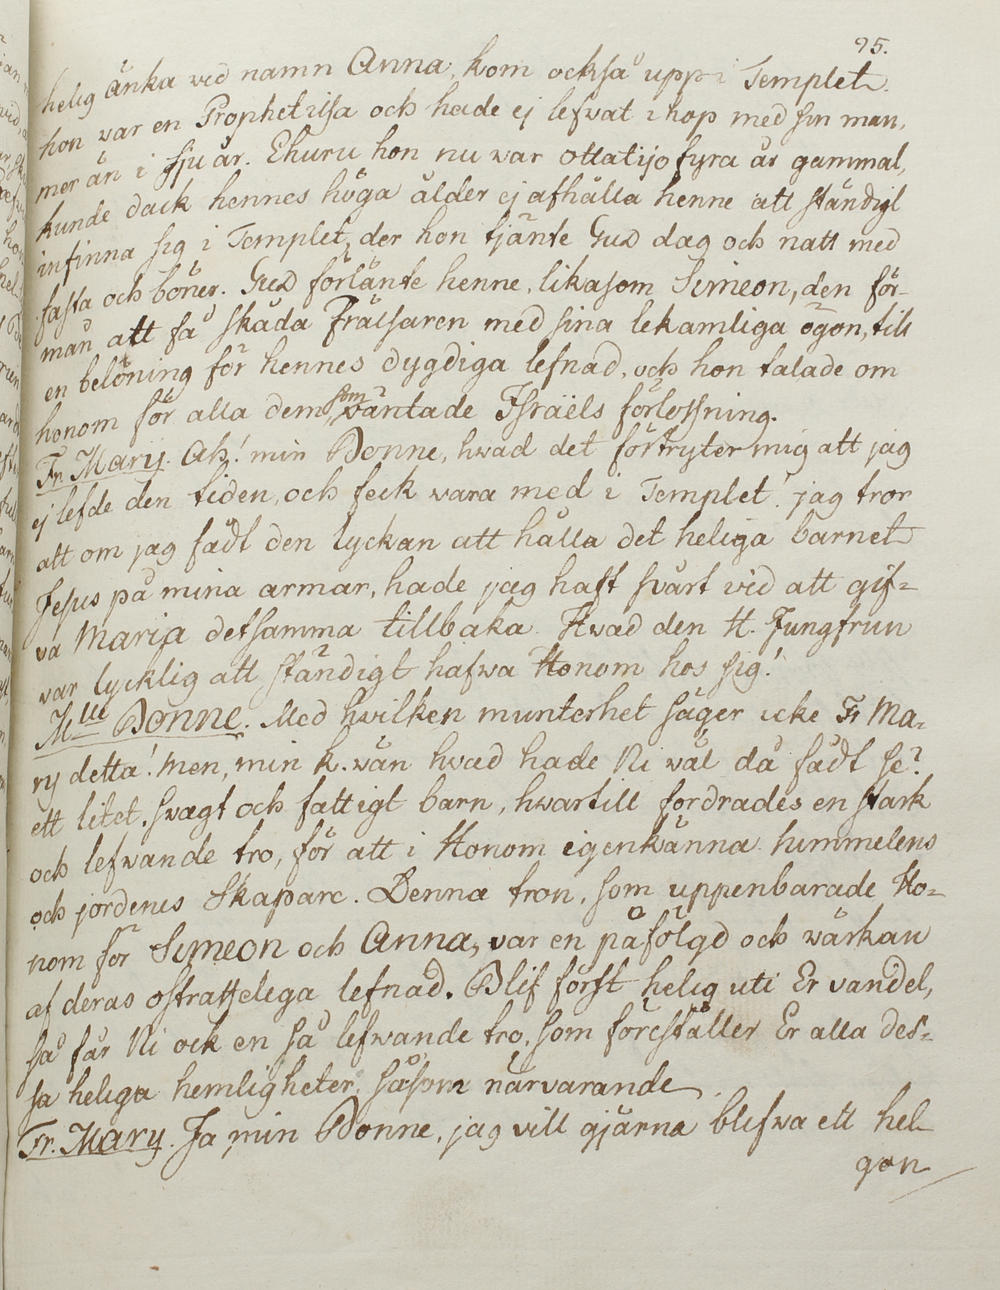 95.
helig änka vid namn Anna, kom också upp i Templet.
hon war en Prophetissa och hade ej lefvat ihop med sin man,
mer än i sju år. Ehuru hon nu war ottatijo fyra år gammal,
kunde dack hennes höga ålder ej afhålla henne att ständigt
infinna sig i Templet, der hon tjänte Gud dag och natt med
fasta och böner. Gud förlänte henne, likasom Simeon, den för-
mån att få skåda Frälsaren med sina lekamliga ögon, till
en belöning för hennes dygdiga lefnad, och hon talade om
honom för alla dem som väntade Israëls förlossning.
Fr. Mary. Ah! min Bonne, hwad det förtryter mig att jag
ej lefde den tiden, och feck vara med i Templet! jag tror
att om jag fådt den lyckan att hålla det heliga barnet
Jesus på mina armar, hade jag haft svårt vid att gif-
va Maria detsamma tillbaka. Hvad den H. Jungfrun
var lycklig att ständigt hafwa Honom hos sig!
Mlle Bonne. Med hvilken munterhet säger icke Fr Ma-
ry detta! Men, min k. vän hvad hade Ni wäl då fådt se?
ett litet, svagt och fattigt barn, hwartill fordrades en stark
och lefwande tro, för att i Honom igenkänna himmelens
och jordenes Skapare. Denna tron, som uppenbarade Ho-
nom för Simeon och Anna, var en påfölgd och wärkan
af deras ostraffeliga lefnad. Blif först helig uti Er vandel,
så får Ni ock en så lefwande tro, som föreställer Er alla des-
sa heliga hemligheter, såsom närvarande.
Fr. Mary. Ja min Bonne, jag vill gjärna blifwa ett hel-
gon